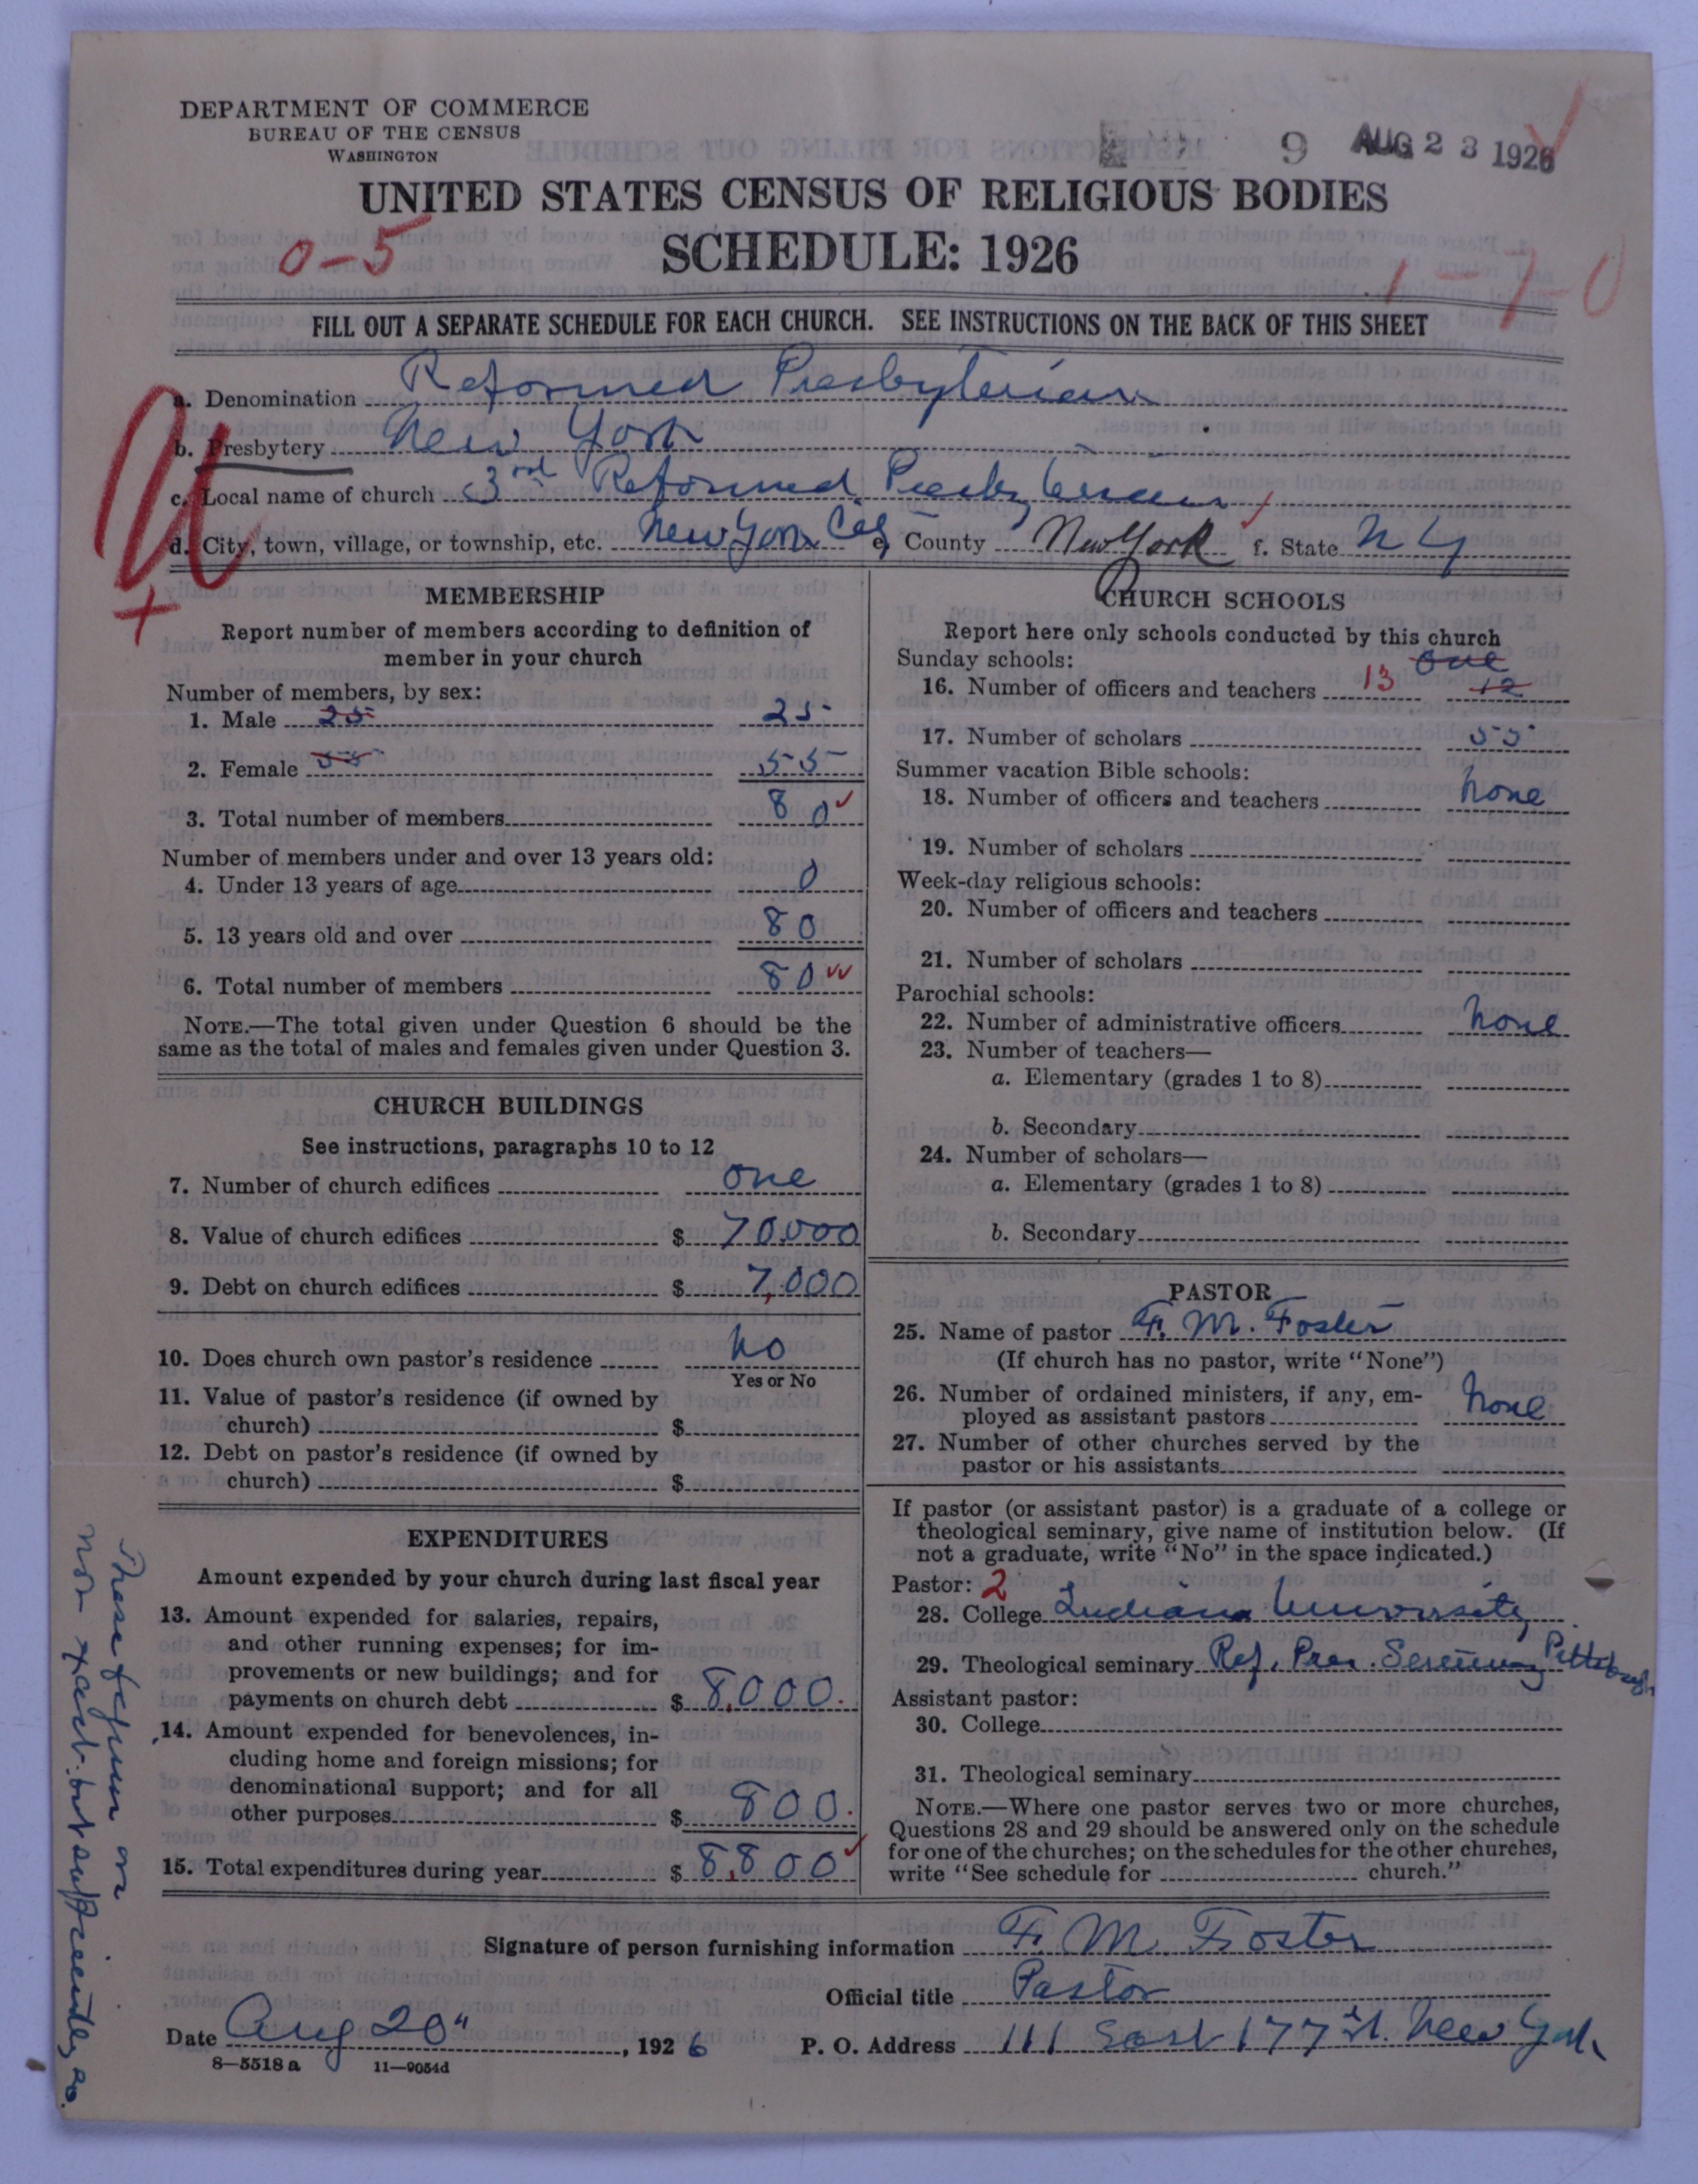 DEPARTMENT OF COMMERCE
BUREAU OF THE CENSUS
WASHINGTON
9 AUG 23 1926
UNITED STATES CENSUS OF RELIGIOUS BODIES
SCHEDULE: 1926
0-5
1-7-0
FILL OUT A SEPARATE SCHEDULE FOR EACH CHURCH. SEE INSTRUCTIONS ON THE BACK OF THIS SHEET
a. Denomination Reformed Presbyterian
b. Presbytery New York
c. Local name of church 3rd Reformed Presbyterian
d. City, town, village, or township, etc. New York City e. County New York f. State N Y
MEMBERSHIP
Report number of members according to definition of
member in your church
Number of members, by sex:
1. Male 25 25
2. Female 55 55
3. Total number of members 80
Number of members under and over 13 years old:
4. Under 13 years of age 0
5. 13 years old and over 80
6. Total number of members 80
NOTE.—The total given under Question 6 should be the
same as the total of males and females given under Question 3.
CHURCH BUILDINGS
See instructions, paragraphs 10 to 12
7. Number of church edifices one
8. Value of church edifices $ 70000
9. Debt on church edifices $ 7,000
10. Does church own pastor's residence No
Yes or No
11. Value of pastor's residence (if owned by
church) $
12. Debt on pastor's residence (if owned by
church) $
EXPENDITURES
Amount expended by your church during last fiscal year
13. Amount expended for salaries, repairs,
and other running expenses; for im-
provements or new buildings; and for
payments on church debt $ 8,000.
14. Amount expended for benevolences, in-
cluding home and foreign missions; for
denominational support; and for all
other purposes $ 800.
15. Total expenditures during year $ 8,800
CHURCH SCHOOLS
Report here only schools conducted by this church
Sunday schools: one
16. Number of officers and teachers 13 12
17. Number of scholars 55
Summer vacation Bible schools:
18. Number of officers and teachers None
19. Number of scholars
Week-day religious schools:
20. Number of officers and teachers
21. Number of scholars
Parochial schools:
22. Number of administrative officers None
23. Number of teachers—
a. Elementary (grades 1 to 8)
b. Secondary
24. Number of scholars—
a. Elementary (grades 1 to 8)
b. Secondary
PASTOR
25. Name of pastor F. M. Foster
(If church has no pastor, write "None")
26. Number of ordained ministers, if any, em-
ployed as assistant pastors None
27. Number of other churches served by the
pastor or his assistants
If pastor (or assistant pastor) is a graduate of a college or
theological seminary, give name of institution below. (If
not a graduate, write "No" in the space indicated.)
Pastor: 2
28. College Indiana University
29. Theological seminary Ref. Pres. Seminary Pittsburgh
Assistant pastor:
30. College
31. Theological seminary
NOTE.—Where one pastor serves two or more churches,
Questions 28 and 29 should be answered only on the schedule
for one of the churches; on the schedules for the other churches,
write "See schedule for church."
Signature of person furnishing information F. M. Foster
Official title Pastor
Date Aug 20", 1926 P. O. Address 111 East 177 St. New York
8—5518 a 11—9054d
These figures are
not exact but sufficiently so.